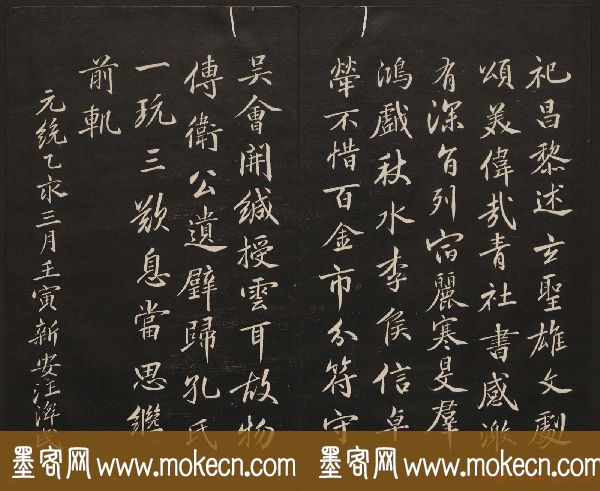 祀昌黎述玄聖雄文劇
頌美偉哉青社書感激
有深旨列宿麗寒旻群
鴻戲秋水李侯信卓
犖不惜百金市分符守
吳會開緘授雲耳故物
傳衛公遺璧歸孔氏
一玩三歎息當思繼
前軌
元統乙亥三月壬寅新安汪澤民
墨客网 www.mokecn.com 墨客网 www.mokecn.com